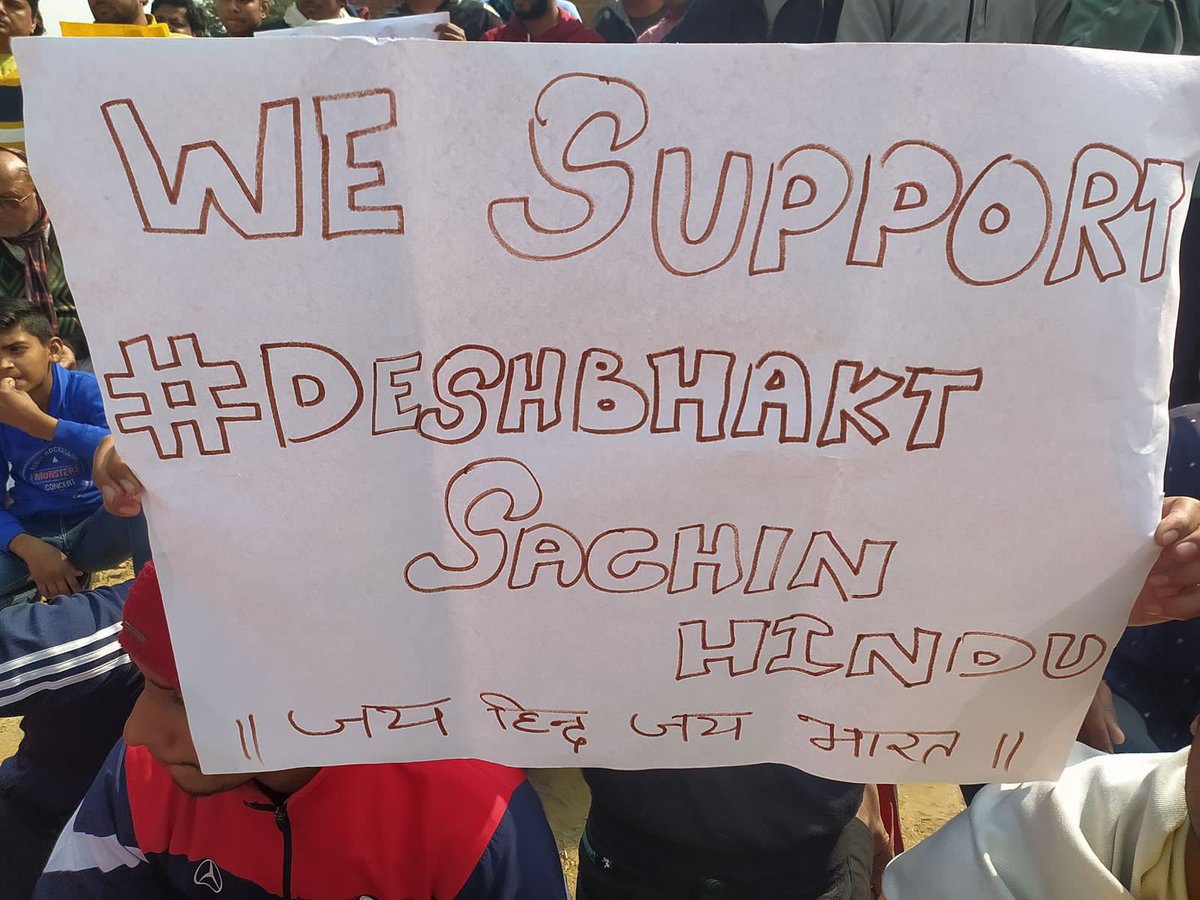 WE SUPPORT
#DESHBHAKT
SACHIN
HINDU
|| जय हिन्द जय भारत ||
MUNSTERS
CONCERT